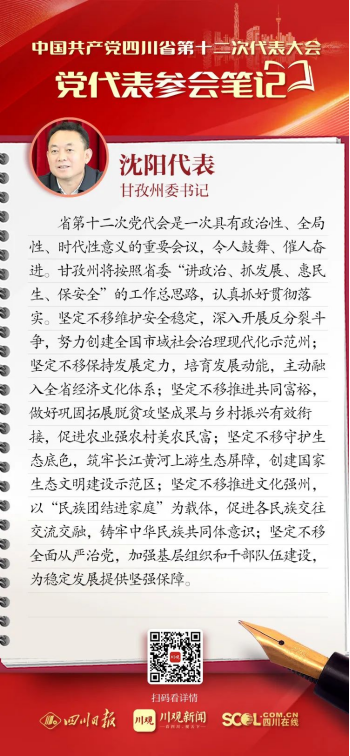 中国共产党四川省第十二次代表大会
党代表参会笔记
沈阳代表
甘孜州委书记
省第十二次党代会是一次具有政治性、全局
性、时代性意义的重要会议，令人鼓舞、催人奋
进。甘孜州将按照省委“讲政治、抓发展、惠民
生、保安全”的工作总思路，认真抓好贯彻落
实。坚定不移维护安全稳定，深入开展反分裂斗
争，努力创建全国市域社会治理现代化示范州；
坚定不移保持发展定力，培育发展动能，主动融
入全省经济文化体系；坚定不移推进共同富裕，
做好巩固拓展脱贫攻坚成果与乡村振兴有效衔
接，促进农业强农村美农民富；坚定不移守护生
态底色，筑牢长江黄河上游生态屏障，创建国家
生态文明建设示范区；坚定不移推进文化强州，
以“民族团结进家庭”为载体，促进各民族交往
交流交融，铸牢中华民族共同体意识；坚定不移
全面从严治党，加强基层组织和干部队伍建设，
为稳定发展提供坚强保障。
川观
扫码看详情
四川日报
川观 川观新闻
SCOL.COM.CN
四川在线